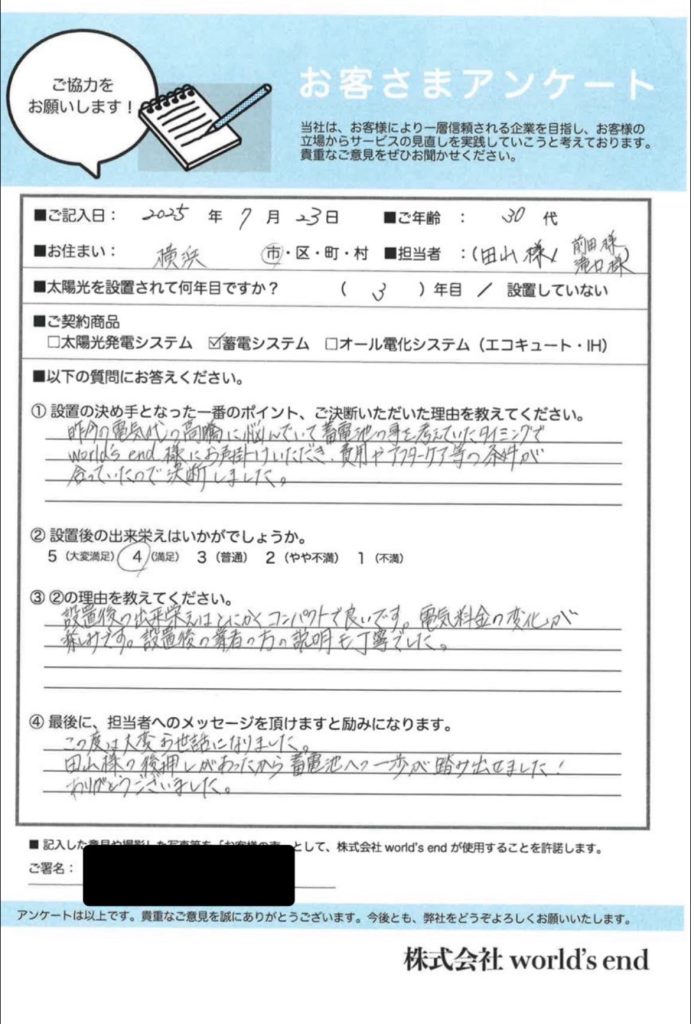 ご協力を
お願いします！
お客さまアンケート
当社は、お客様により一層信頼される企業を目指し、お客様の
立場からサービスの見直しを実践していこうと考えております。
貴重なご意見をぜひお聞かせください。
■ご記入日： 2025 年 7 月 23日 ■ご年齢 ： 30 代
■お住まい： 横浜 市・区・町・村 ■担当者 ：(田山様/ 前田様 滝口様)
■太陽光を設置されて何年目ですか？ （ 3 ）年目 / 設置していない
■ご契約商品
□太陽光発電システム ☑蓄電システム □オール電化システム（エコキュート・IH）
■以下の質問にお答えください。
① 設置の決め手となった一番のポイント、ご決断いただいた理由を教えてください。
昨今の電気代の高騰に悩んでいて蓄電池の事を考えていたタイミングで
world's end 様にお声掛けいただき、費用やアフターケア等の条件が
合っていたので決断しました。
② 設置後の出来栄えはいかがでしょうか。
5（大変満足） 4（満足） 3（普通） 2（やや不満） 1（不満）
③ ②の理由を教えてください。
設置後の出来栄えはとにかくコンパクトで良いです。電気料金の変化が
楽しみです。設置後の業者の方の説明も丁寧でした。
④ 最後に、担当者へのメッセージを頂けますと励みになります。
この度は大変お世話になりました。
田山様の後押しがあったから蓄電池への一歩が踏み出せました！
ありがとうございました。
■ 記入した意見や撮影した写真等を「お客様の声」として、株式会社 world's end が使用することを許諾します。
ご署名：
アンケートは以上です。貴重なご意見を誠にありがとうございます。今後とも、弊社をどうぞよろしくお願いいたします。
株式会社 world's end